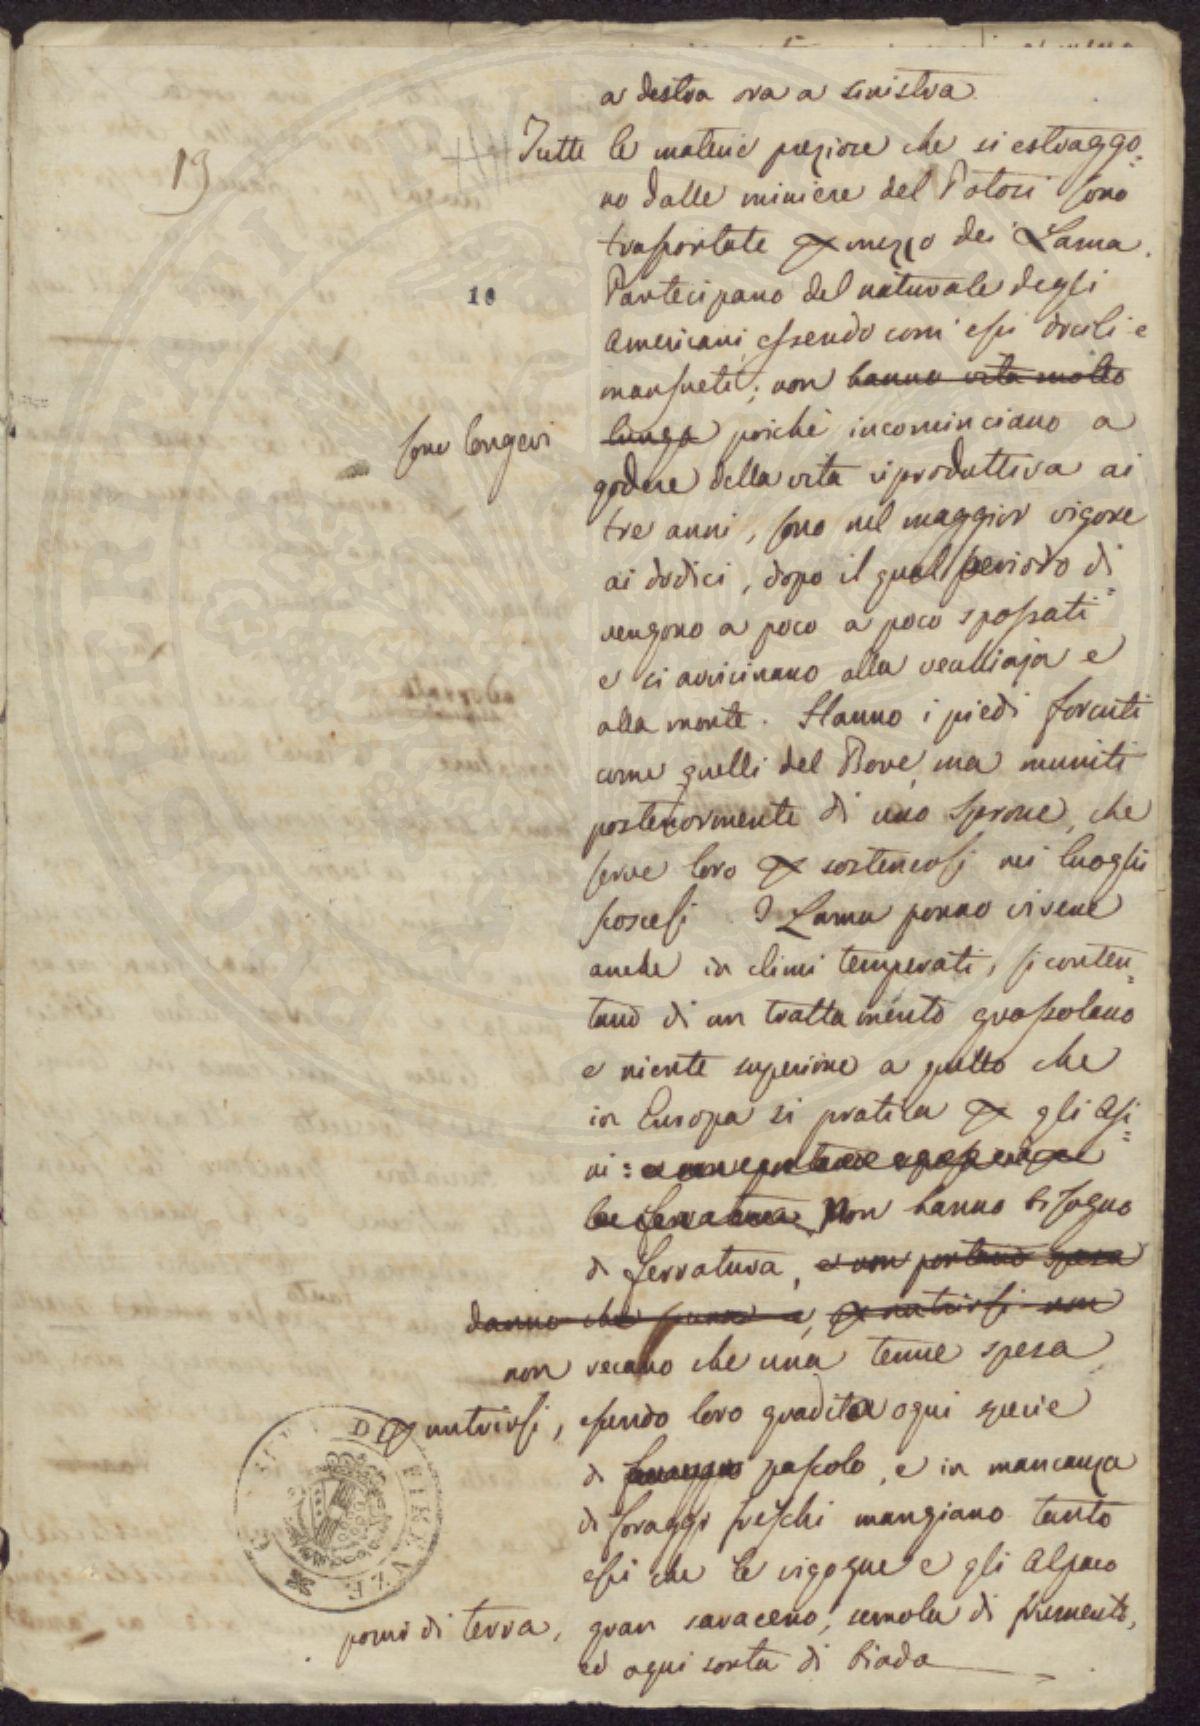 a destra ora a sinistra
19
Tutte le materie preziose che si estraggo=
no dalle miniere del Potosi sono
trasportate per mezzo dei Lama.
10
Partecipano del naturale degli
Americani, essendo com' essi docili e
mansueti; non hanno vita molto
sono longevi
lunga poichè incominciano a
godere della vita riproduttiva ai
tre anni, sono nel maggior vigore
ai dodici, dopo il qual periodo di=
vengono a poco a poco spossati
e si avvicinano alla vecchiaja e
alla morte. Hanno i piedi forcuti
come quelli del Bove, ma muniti
posteriormente di uno Sprone, che
serve loro per sostenersi nei luoghi
scoscesi. I Lama ponno vivere
anche in climi temperati, si conten=
tano di un trattamento grossolano
e niente superiore a quello che
in Europa si pratica per gli Asi=
ni: e non
la ferratura. Non hanno bisogno
di ferratura, e non portano spesa
danno che per nutrirsi non
non recano che una tenue spesa
per nutrirsi, essendo loro gradita ogni specie
DI FIRENZE
di foraggio pascolo, e in mancanza
di foraggi freschi mangiano tanto
essi che le vigogne e gli Alpaco
pomi di terra, gran saraceno, semola di frumento,
ed ogni sorta di biada